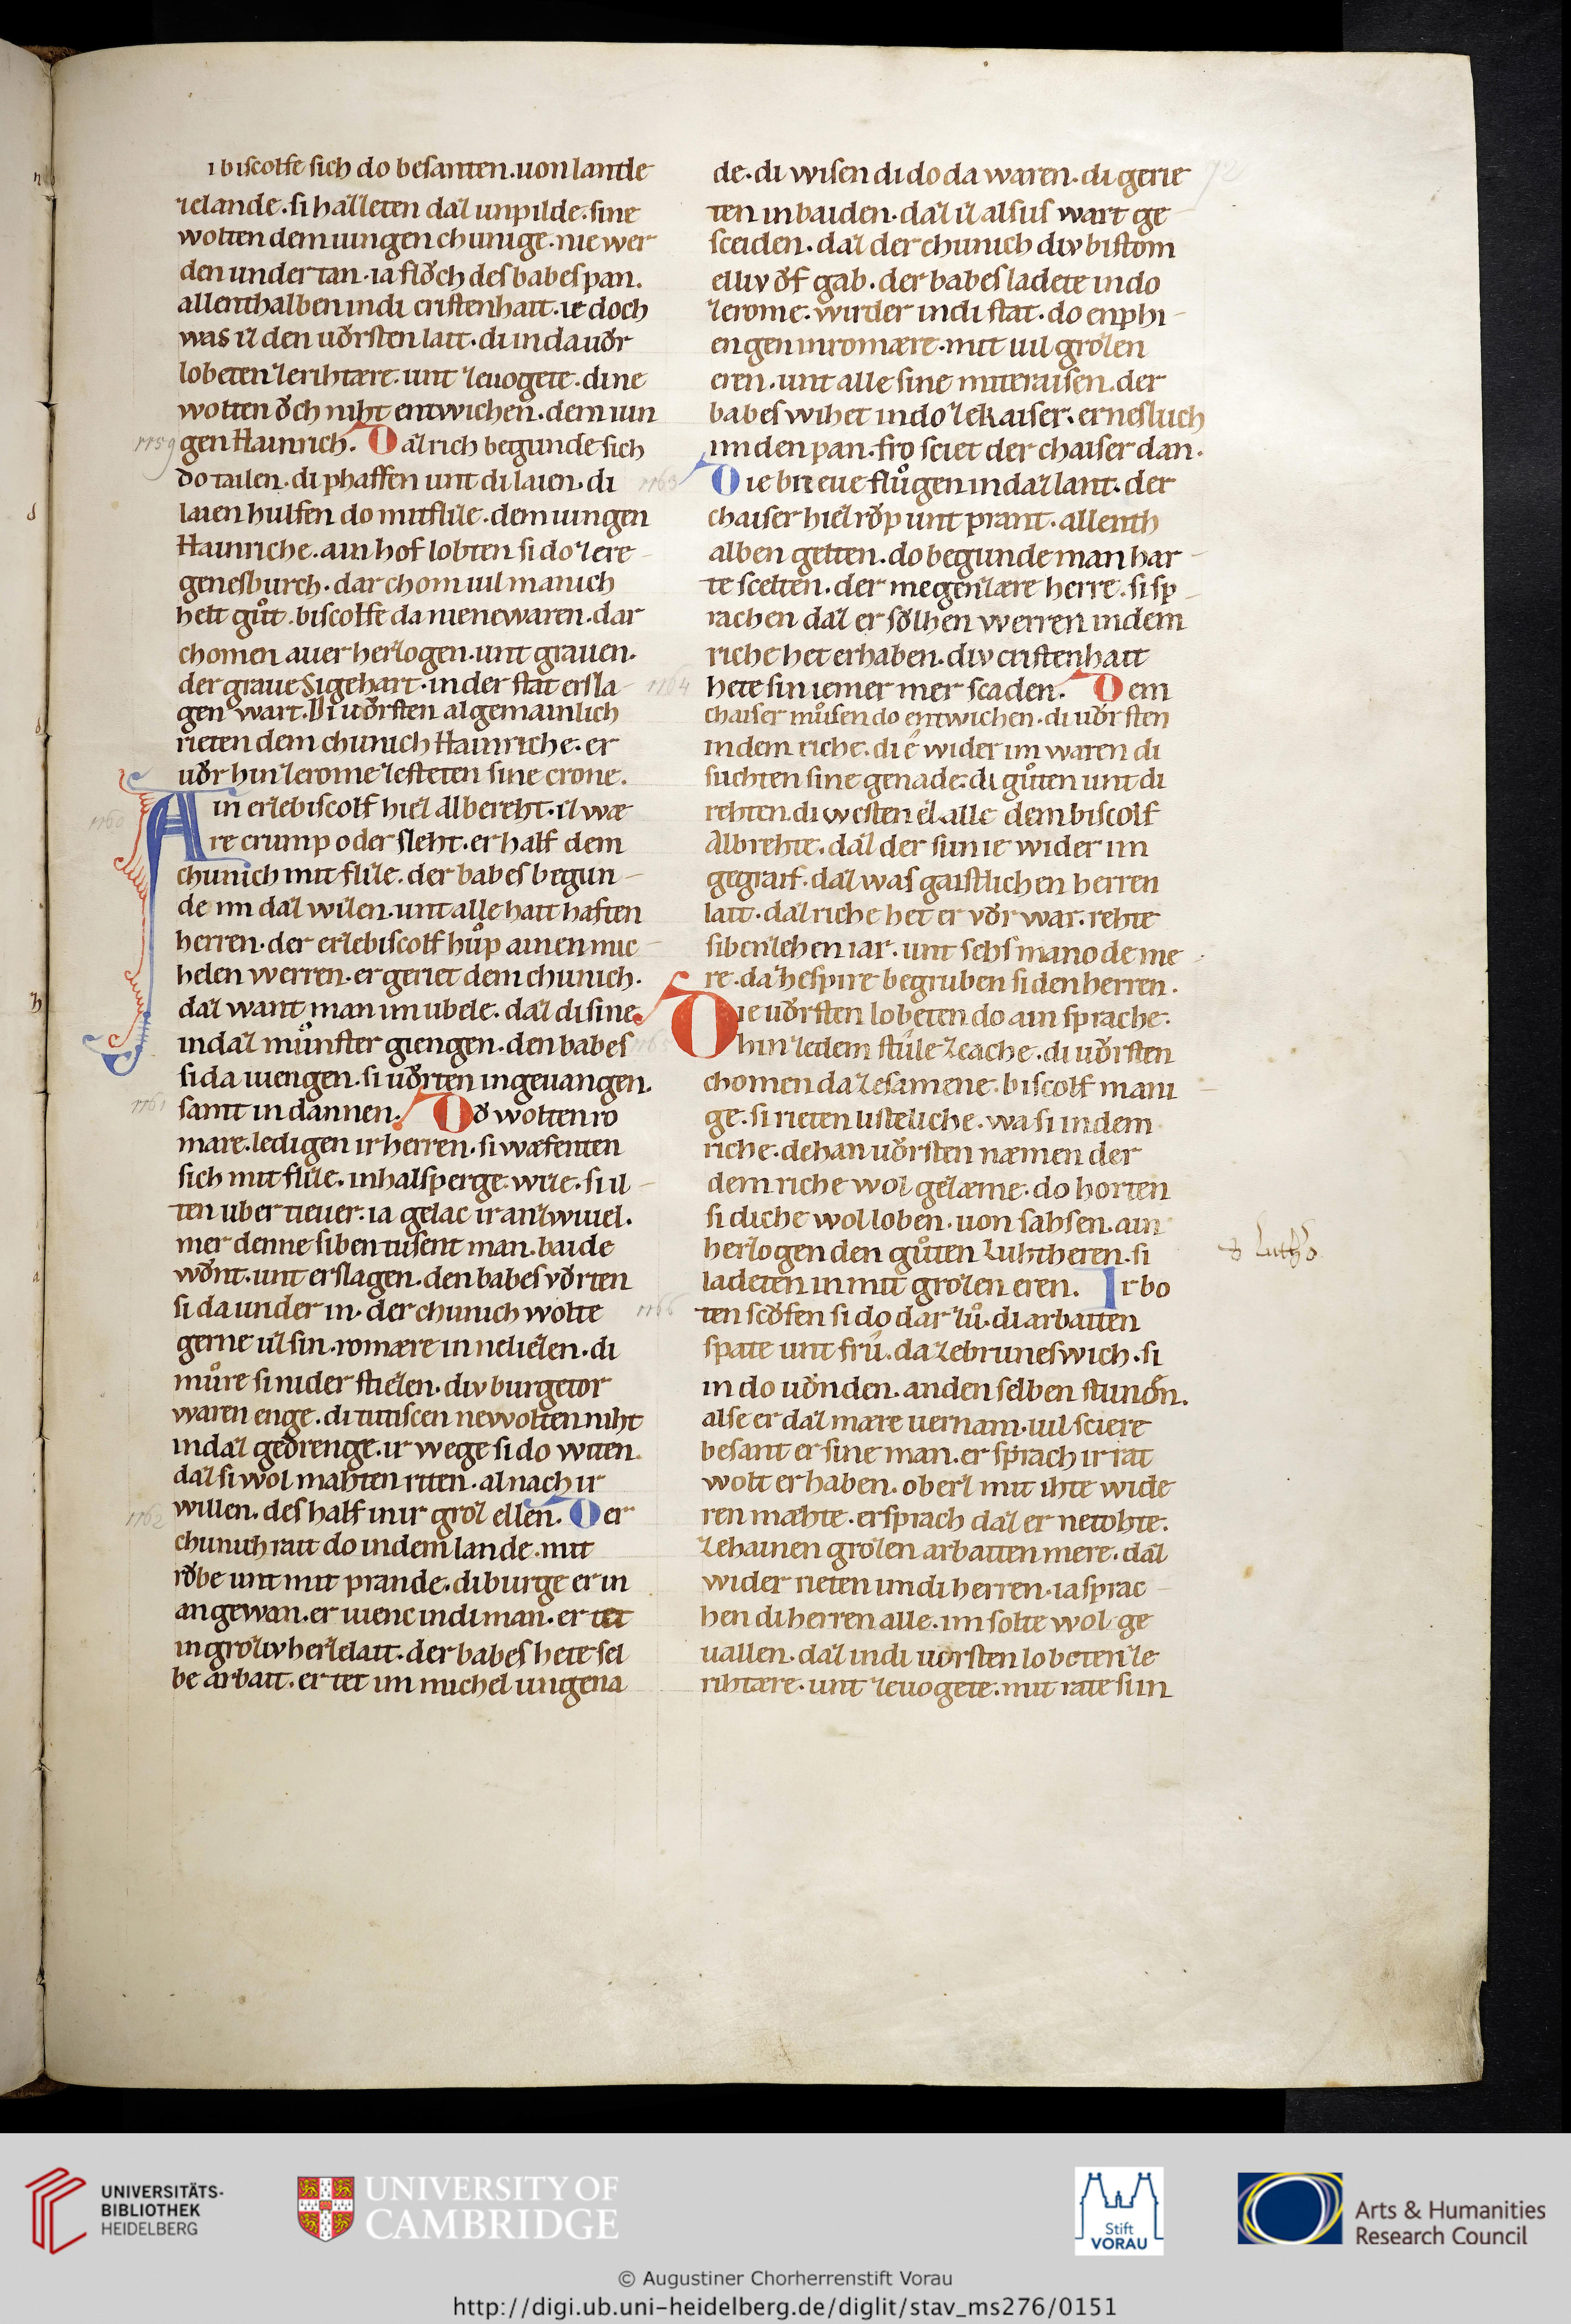 i biscolfe sich do besanten. uon lande
zelande. si hazzeten daz unpilde. sine
wolten dem iungen chunige. niewer
den undertan. ia flǒch des babes pan.
allenthalben in di cristenhait. ie doch
was iz den uǒrsten lait. di in da uǒr
lobeten ze rihtære. unt ze uogete. di ne
wolten ǒch niht entwichen. dem iun
1159 gen Hainrich. Daz rich begunde sich
do tailen. di phaffen unt di laien. di
laien hulfen do mit flize. dem iungen
Hainriche. ain hof lobten si do ze re
genesburch. dar chom uil manich
helt gůt. biscolfe da niene waren. dar
chomen auer herzogen. unt grauen.
der graue Sigehart. in der stat ersla
gen wart. Di uǒrsten algemainlich
rieten dem chunich Hainriche. er
uǒr hin ze rome ze steten sine crone.
1160 Ain erzebiscolf hiez Albereht. iz wæ
re crump oder sleht. er half dem
chunich mit flize. der babes begun
de im daz wizen. unt alle haithaften
herren. der erzebiscolf hůp ainen mic
helen werren. er geriet dem chunich.
daz want man im ubele. daz di sine
in daz můnster giengen. den babes
si da uiengen. si uǒrten in geuangen.
1161 samt in dannen. Dǒ wolten ro
mare. ledigen ir herren. si wæfenten
sich mit flize. in halsperge wize. si il
ten uber tieuer. ia gelac ir an zwiuel.
mer denne siben tusent man. baide
wǒnt. unt erslagen. den babes vǒrten
si da under in. der chunich wolte
gerne uz sin. romære in ne liezen. di
můre si nider stiezen. div burgetor
waren enge. di tutiscen ne wolten niht
in daz gedrenge. ir wege si do witen.
daz si wol mahten riten. al nach ir
1162 willen. des half in ir groz ellen. Der
chunich rait do in dem lande. mit
rǒbe unt mit prande. di burge er in
an gewan. er uienc in di man. er tet
in groziv herzelait. der babes hete sel
be arbait. er tet im michel ungena
72
de. di wisen di do da waren. di gerie
ten in baiden. daz iz alsus wart ge
sceiden. daz der chunich div bistom
elliv ǒf gab. der babes ladete in do
ze rome. wider in di stat. do enphi
engen in romære. mit uil grozen
eren. unt alle sine mitteraisen. der
babes wihet in do ze kaiser. er nesluch
im den pan. fro sciet der chaiser dan.
1163 Die brieue flůgen in daz lant. der
chaiser hiez rǒp unt prant. allenth
alben gelten. do begunde man har
te scelten. der megenzære herre. si sp
rachen daz er sǒlhen werren in dem
riche het erhaben. div cristenhait
1164 hete sin iemer mer scaden. Dem
chaiser můsen do entwichen. di uǒrsten
in dem riche. di é wider im waren di
suchten sine genade. di gůten unt di
rehten. di westen ez alle dem biscolf
Albrehte. daz der sun ie wider im
gegraif. daz was gaistlichen herren
lait. daz riche het er vǒr war. rehte
sibenzehen iar. unt sehs manode me
re. da ze spire begruben si den herren.
1165 Die uǒrsten lobeten do ain sprache.
hin ze dem stůle ze ache. di uǒrsten
chomen da zesamene. biscolf mani
ge. si rieten listeliche. wa si in dem
riche. dehan uǒrsten næmen der
dem riche wol gezæme. do horten
si diche wol loben. uon sahsen. ain
herzogen den gůten Luhtheren. si
ladeten in mit grozen eren. Ir bo
1166 ten scǒfen si do dar zů. di arbaiten
spate unt frů. da ze bruneswich. si
in do uǒnden. an den selben stundn.
alse er daz mære uernam. uil sciere
besant er sine man. er sprach ir rat
wolt er haben. ob erz mit ihte wide
ren mæhte. er sprach daz er ne tohte.
ze hainen grozen arbaiten mere. daz
wider rieten im di herren. ia sprac
hen di herren alle. im solte wol ge
uallen. daz in di uorsten lobeten ze
rihtære. unt ze uogete. mit rate sun
UNIVERSITÄTS-
BIBLIOTHEK
HEIDELBERG
UNIVERSITY OF
CAMBRIDGE
Stift
VORAU
Arts & Humanities
Research Council
© Augustiner Chorherrenstift Vorau
http://digi.ub.uni-heidelberg.de/diglit/stav_ms276/0151